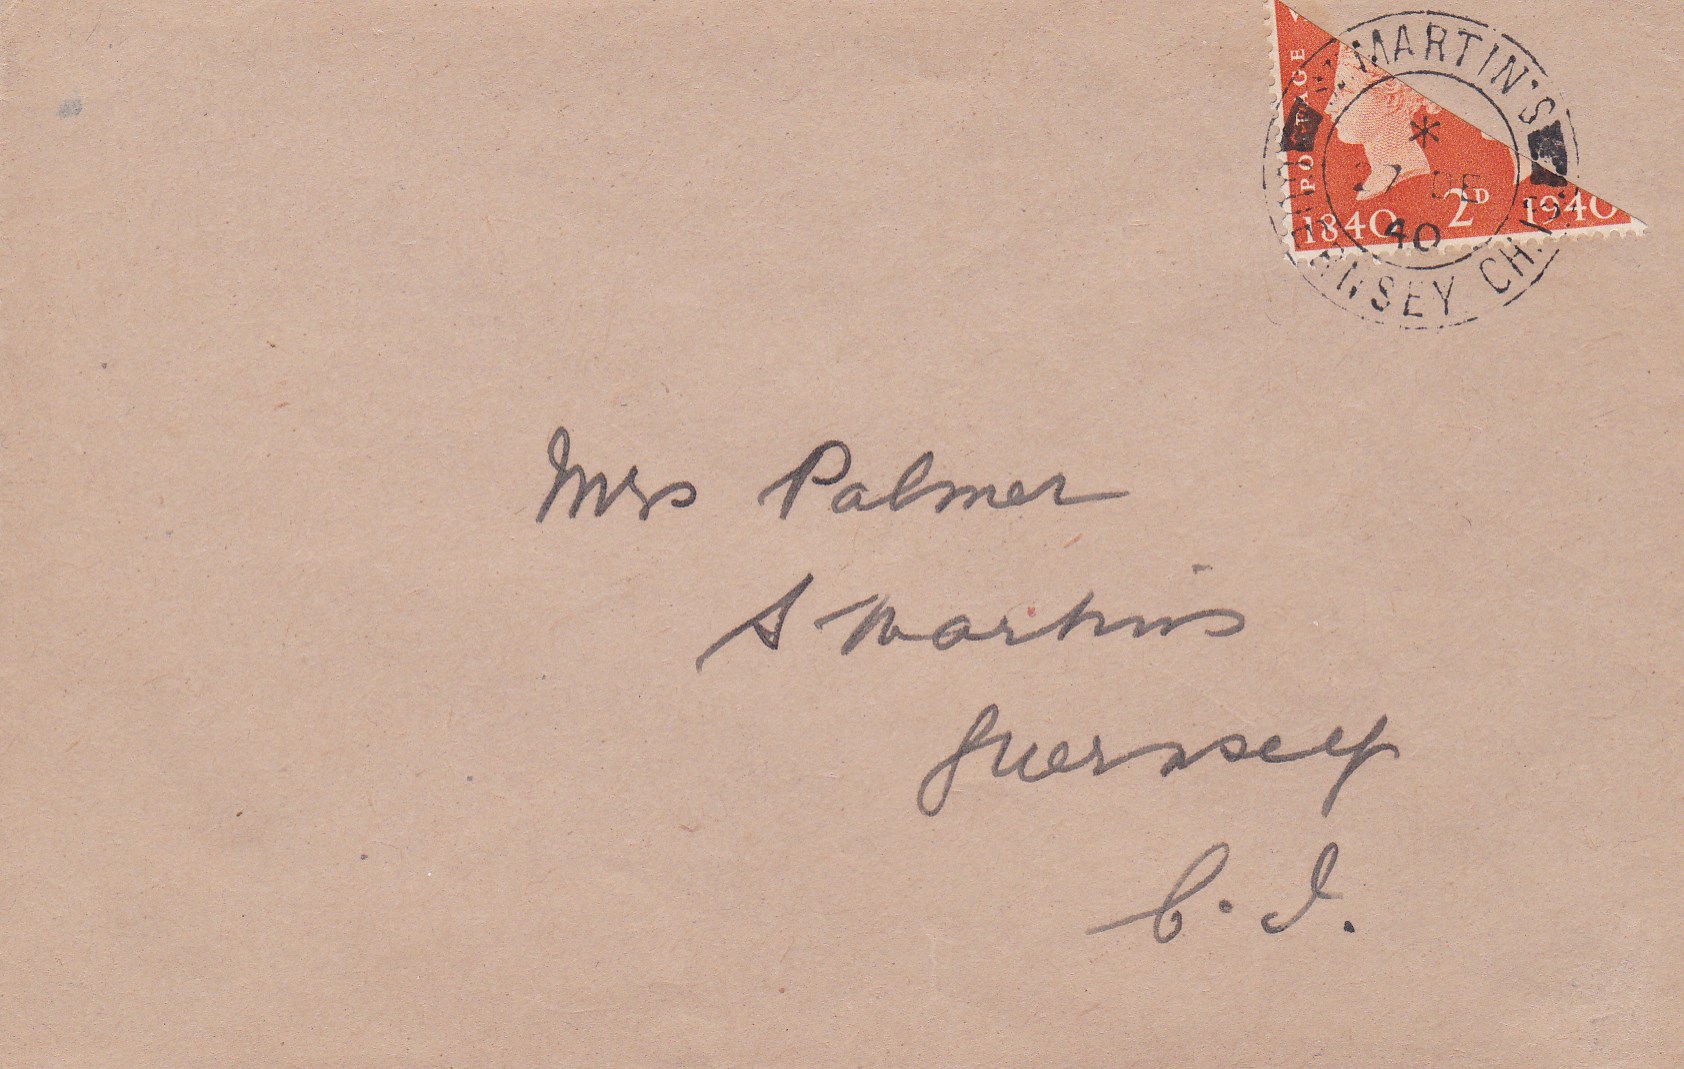 POSTAGE
1840 2D 1940
MARTIN'S
*
27 DE
40
GUERNSEY CH. IS.
Mrs Palmer
S Martins
Guernsey
C. I.